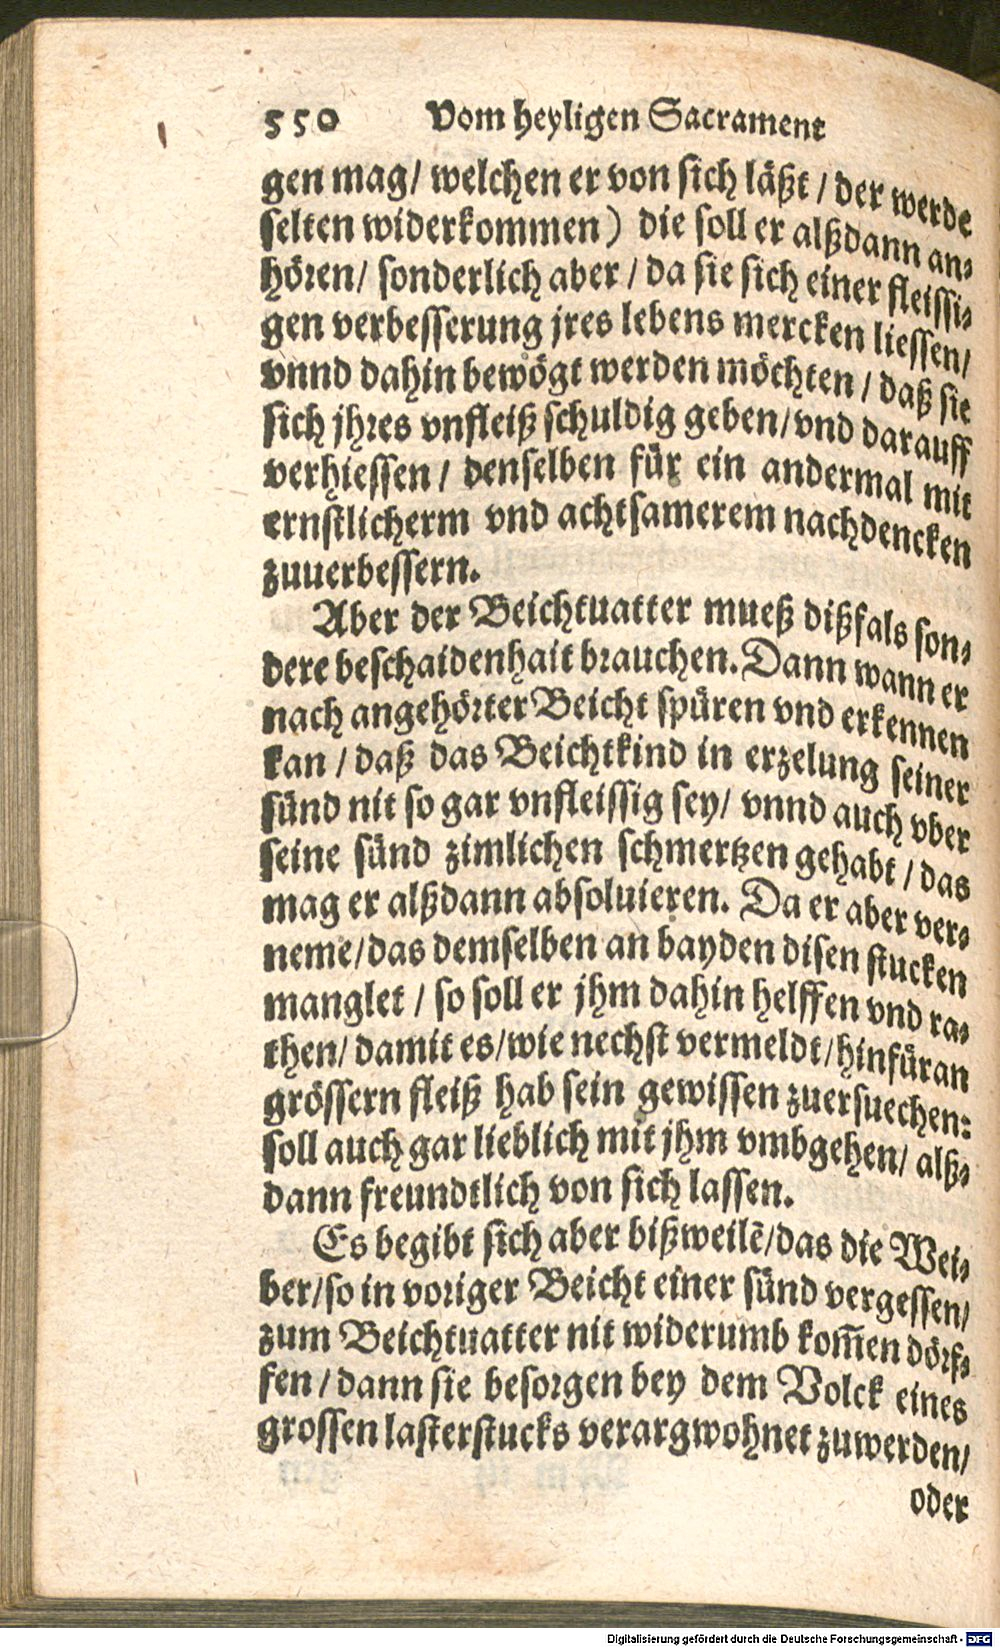 550 Vom heyligen Sacrament
gen mag/ welchen er von sich läßt / der werde
selten widerkommen) die soll er alßdann an⸗
hören/ sonderlich aber / da sie sich einer fleissi⸗
gen verbesserung jres lebens mercken liessen/
vnnd dahin bewögt werden möchten / daß sie
sich jhres vnfleiß schuldig geben/vnd darauff
verhiessen / denselben für ein andermal mit
ernstlicherm vnd achtsamerem nachdencken
zuuerbessern.
Aber der Beichtuatter mueß dißfals son⸗
dere beschaidenhait brauchen. Dann wann er
nach angehörter Beicht spüren vnd erkennen
kan / daß das Beichtkind in erzelung seiner
sünd nit so gar vnfleissig sey/ vnnd auch vber
seine sünd zimlichen schmertzen gehabt / das
mag er alßdann absoluieren. Da er aber ver⸗
neme/das demselben an bayden disen stucken
manglet / so soll er jhm dahin helffen vnd ra⸗
then/ damit es/wie nechst vermeldt/hinfüran
grössern fleiß hab sein gewissen zuersuechen:
soll auch gar lieblich mit jhm vmbgehen/ alß⸗
dann freundtlich von sich lassen.
Es begibt sich aber bißweilẽ/das die Wei⸗
ber/so in voriger Beicht einer sünd vergessen/
zum Beichtuatter nit widerumb kom̃en dörf⸗
fen / dann sie besorgen bey dem Volck eines
grossen lasterstucks verargwohnet zuwerden/
oder
Digitalisierung gefördert durch die Deutsche Forschungsgemeinschaft - DFG